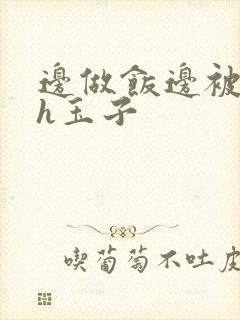 邊做飯邊被
h玉子
喫葡萄不吐皮